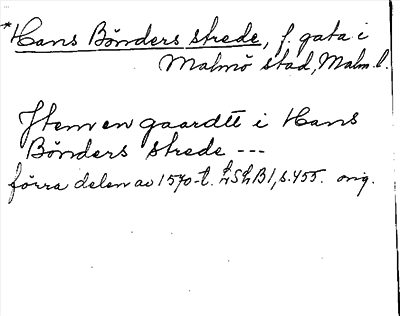 *Hans Bönders strede, f. gata i
Malmö stad, Malm. l.
Item en gaardtt i Hans
Bönders strede ---
förra delen av 1570-t. LSLB1, s. 455. orig.